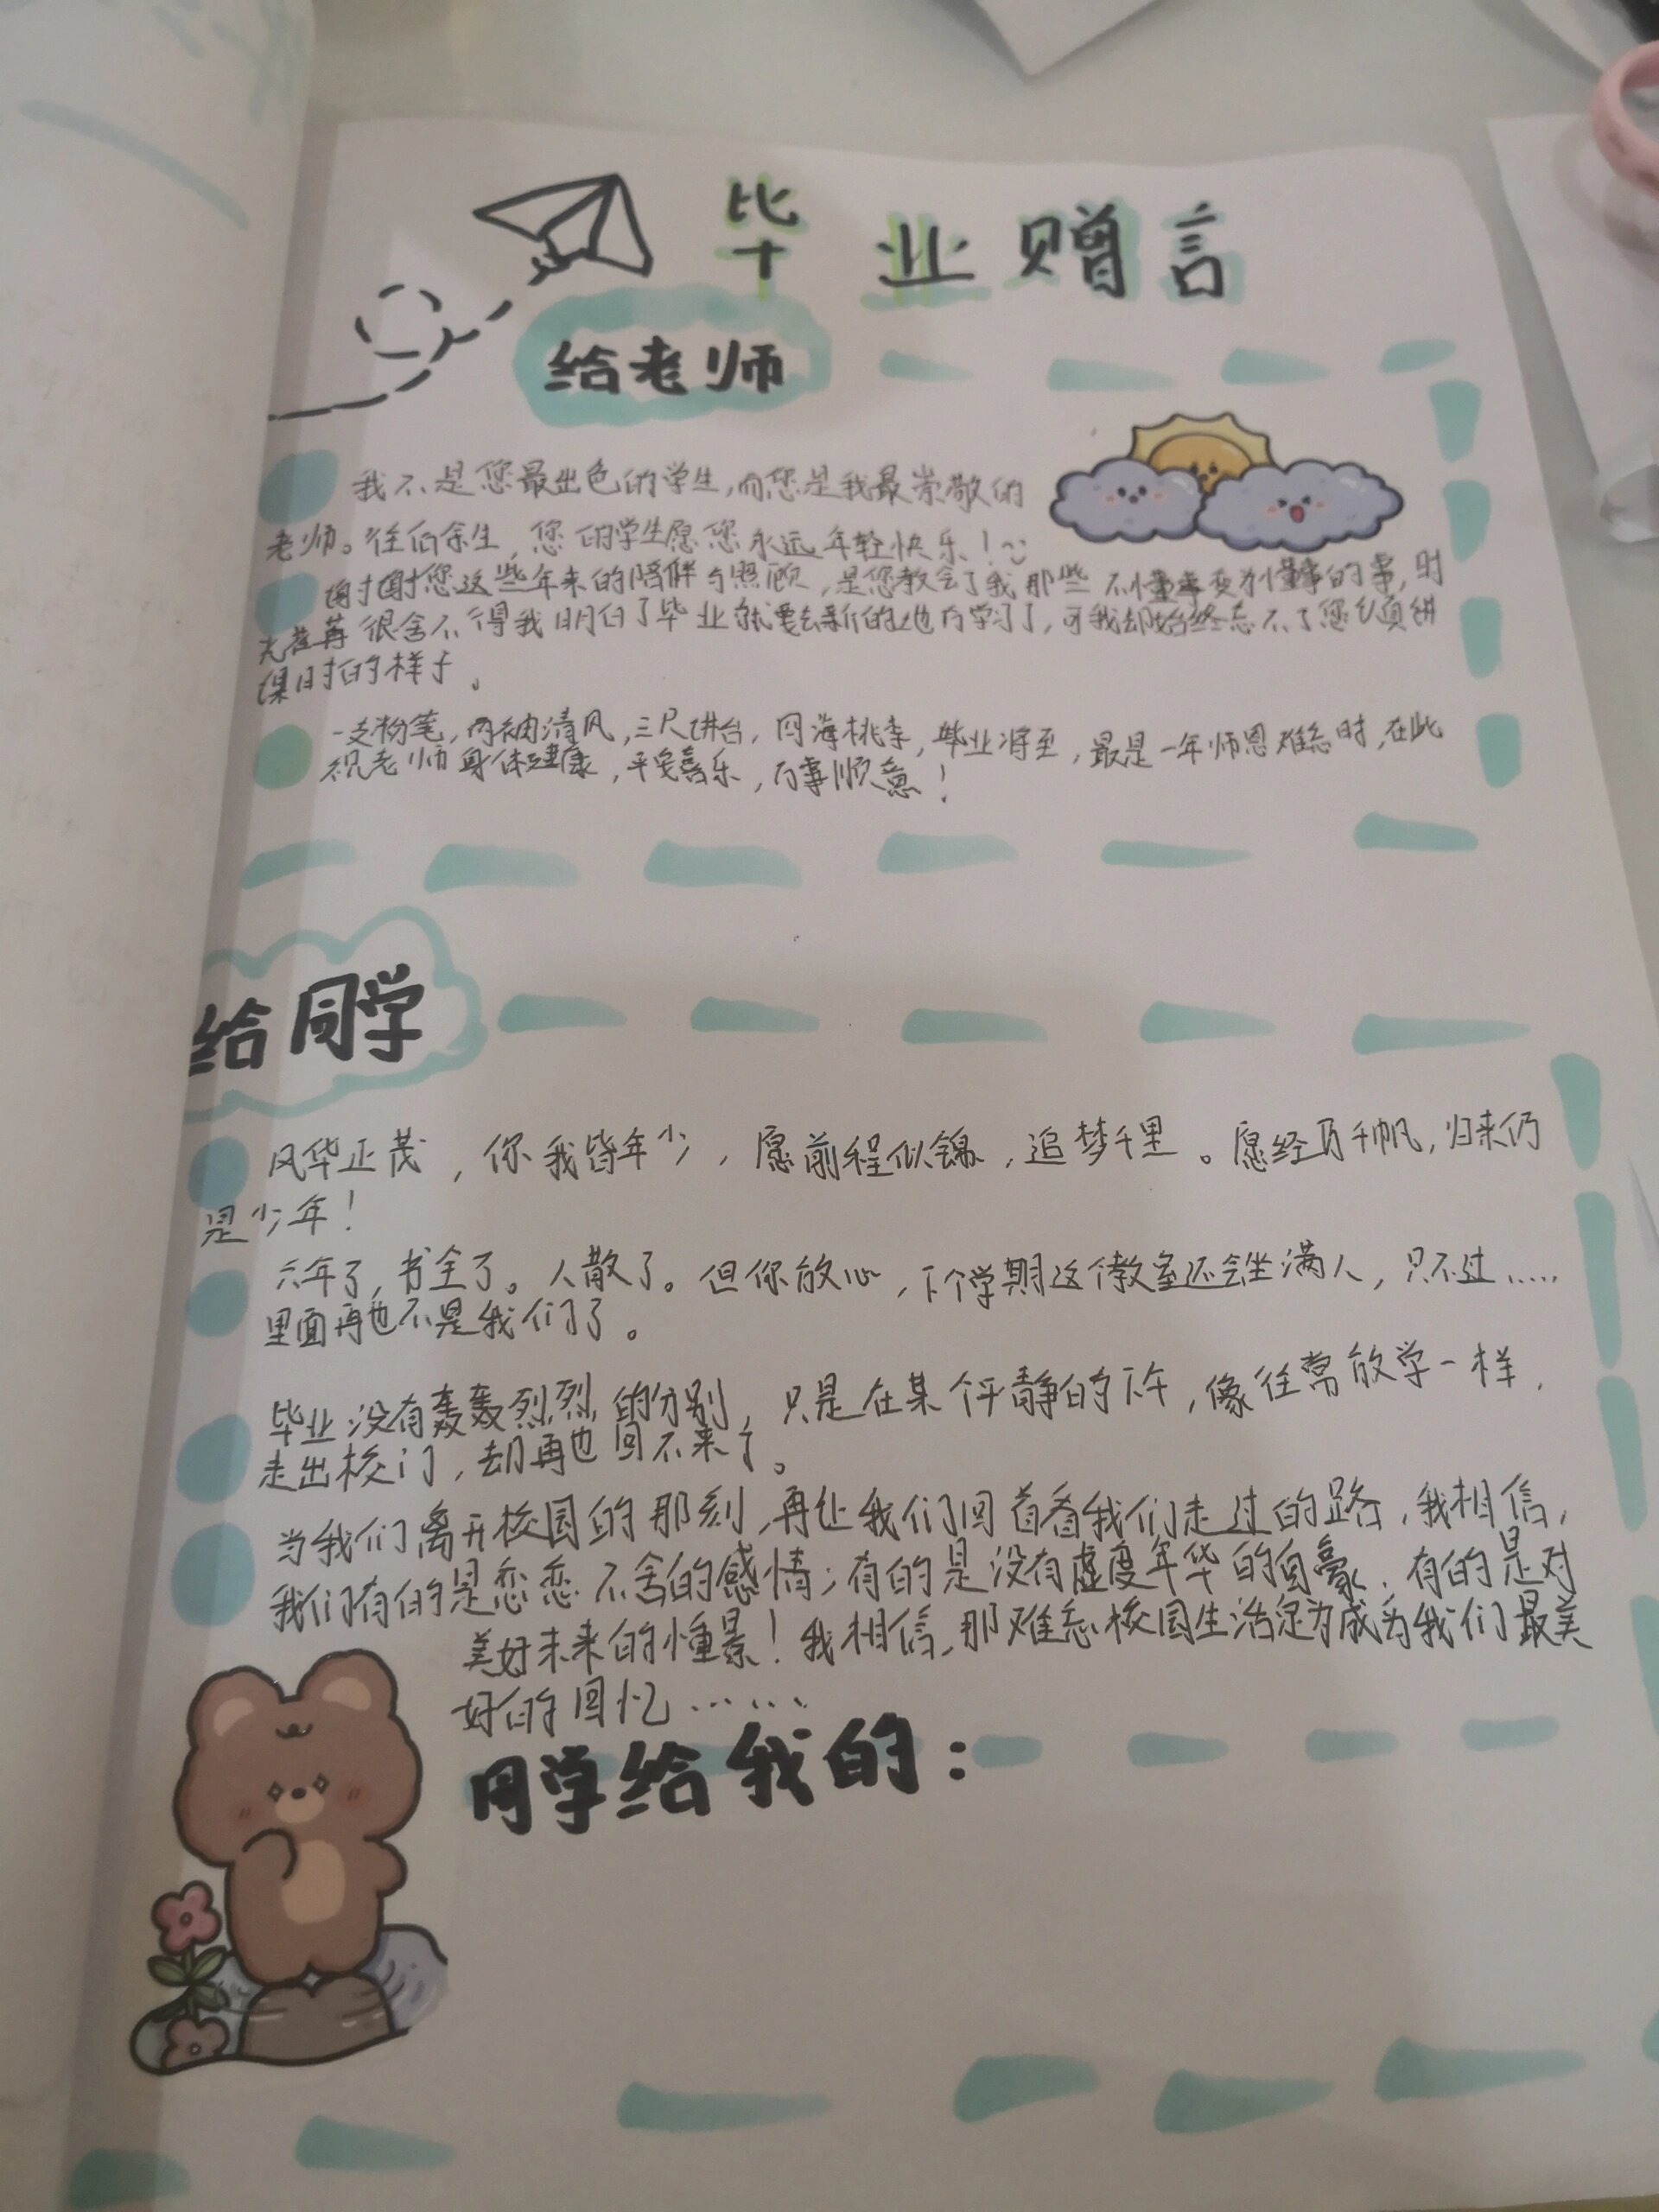 毕业赠言
给老师
我不是您最出色的学生,而您是我最崇敬的
老师。往后余生,您的学生愿您永远年轻快乐!
谢谢您这些年来的陪伴与照顾,是您教会了我那些不懂事变为懂事的事,时
光荏苒很舍不得我明白了毕业就要去新的地方学习了,可我却始终忘不了您认真讲
课时的样子。
一支粉笔,两袖清风,三尺讲台,四海桃李,毕业将至,最是一年师恩难忘时,在此
祝老师身体健康,平安喜乐,万事顺意!
给同学
风华正茂,你我皆年少,愿前程似锦,追梦千里。愿经历千帆,归来仍
是少年!
六年了,书全了。人散了。但你放心,下个学期这个教室还会坐满人,只不过……
里面再也不是我们了。
毕业没有轰轰烈烈的分别,只是在某个平静的下午,像往常放学一样,
走出校门,却再也回不来了。
当我们离开校园的那刻,再让我们回首看我们走过的路,我相信,
我们有的是恋恋不舍的感情;有的是没有虚度年华的自豪;有的是对
美好未来的憧憬!我相信,那难忘校园生活定为成为我们最美
好的回忆……
同学给我的: